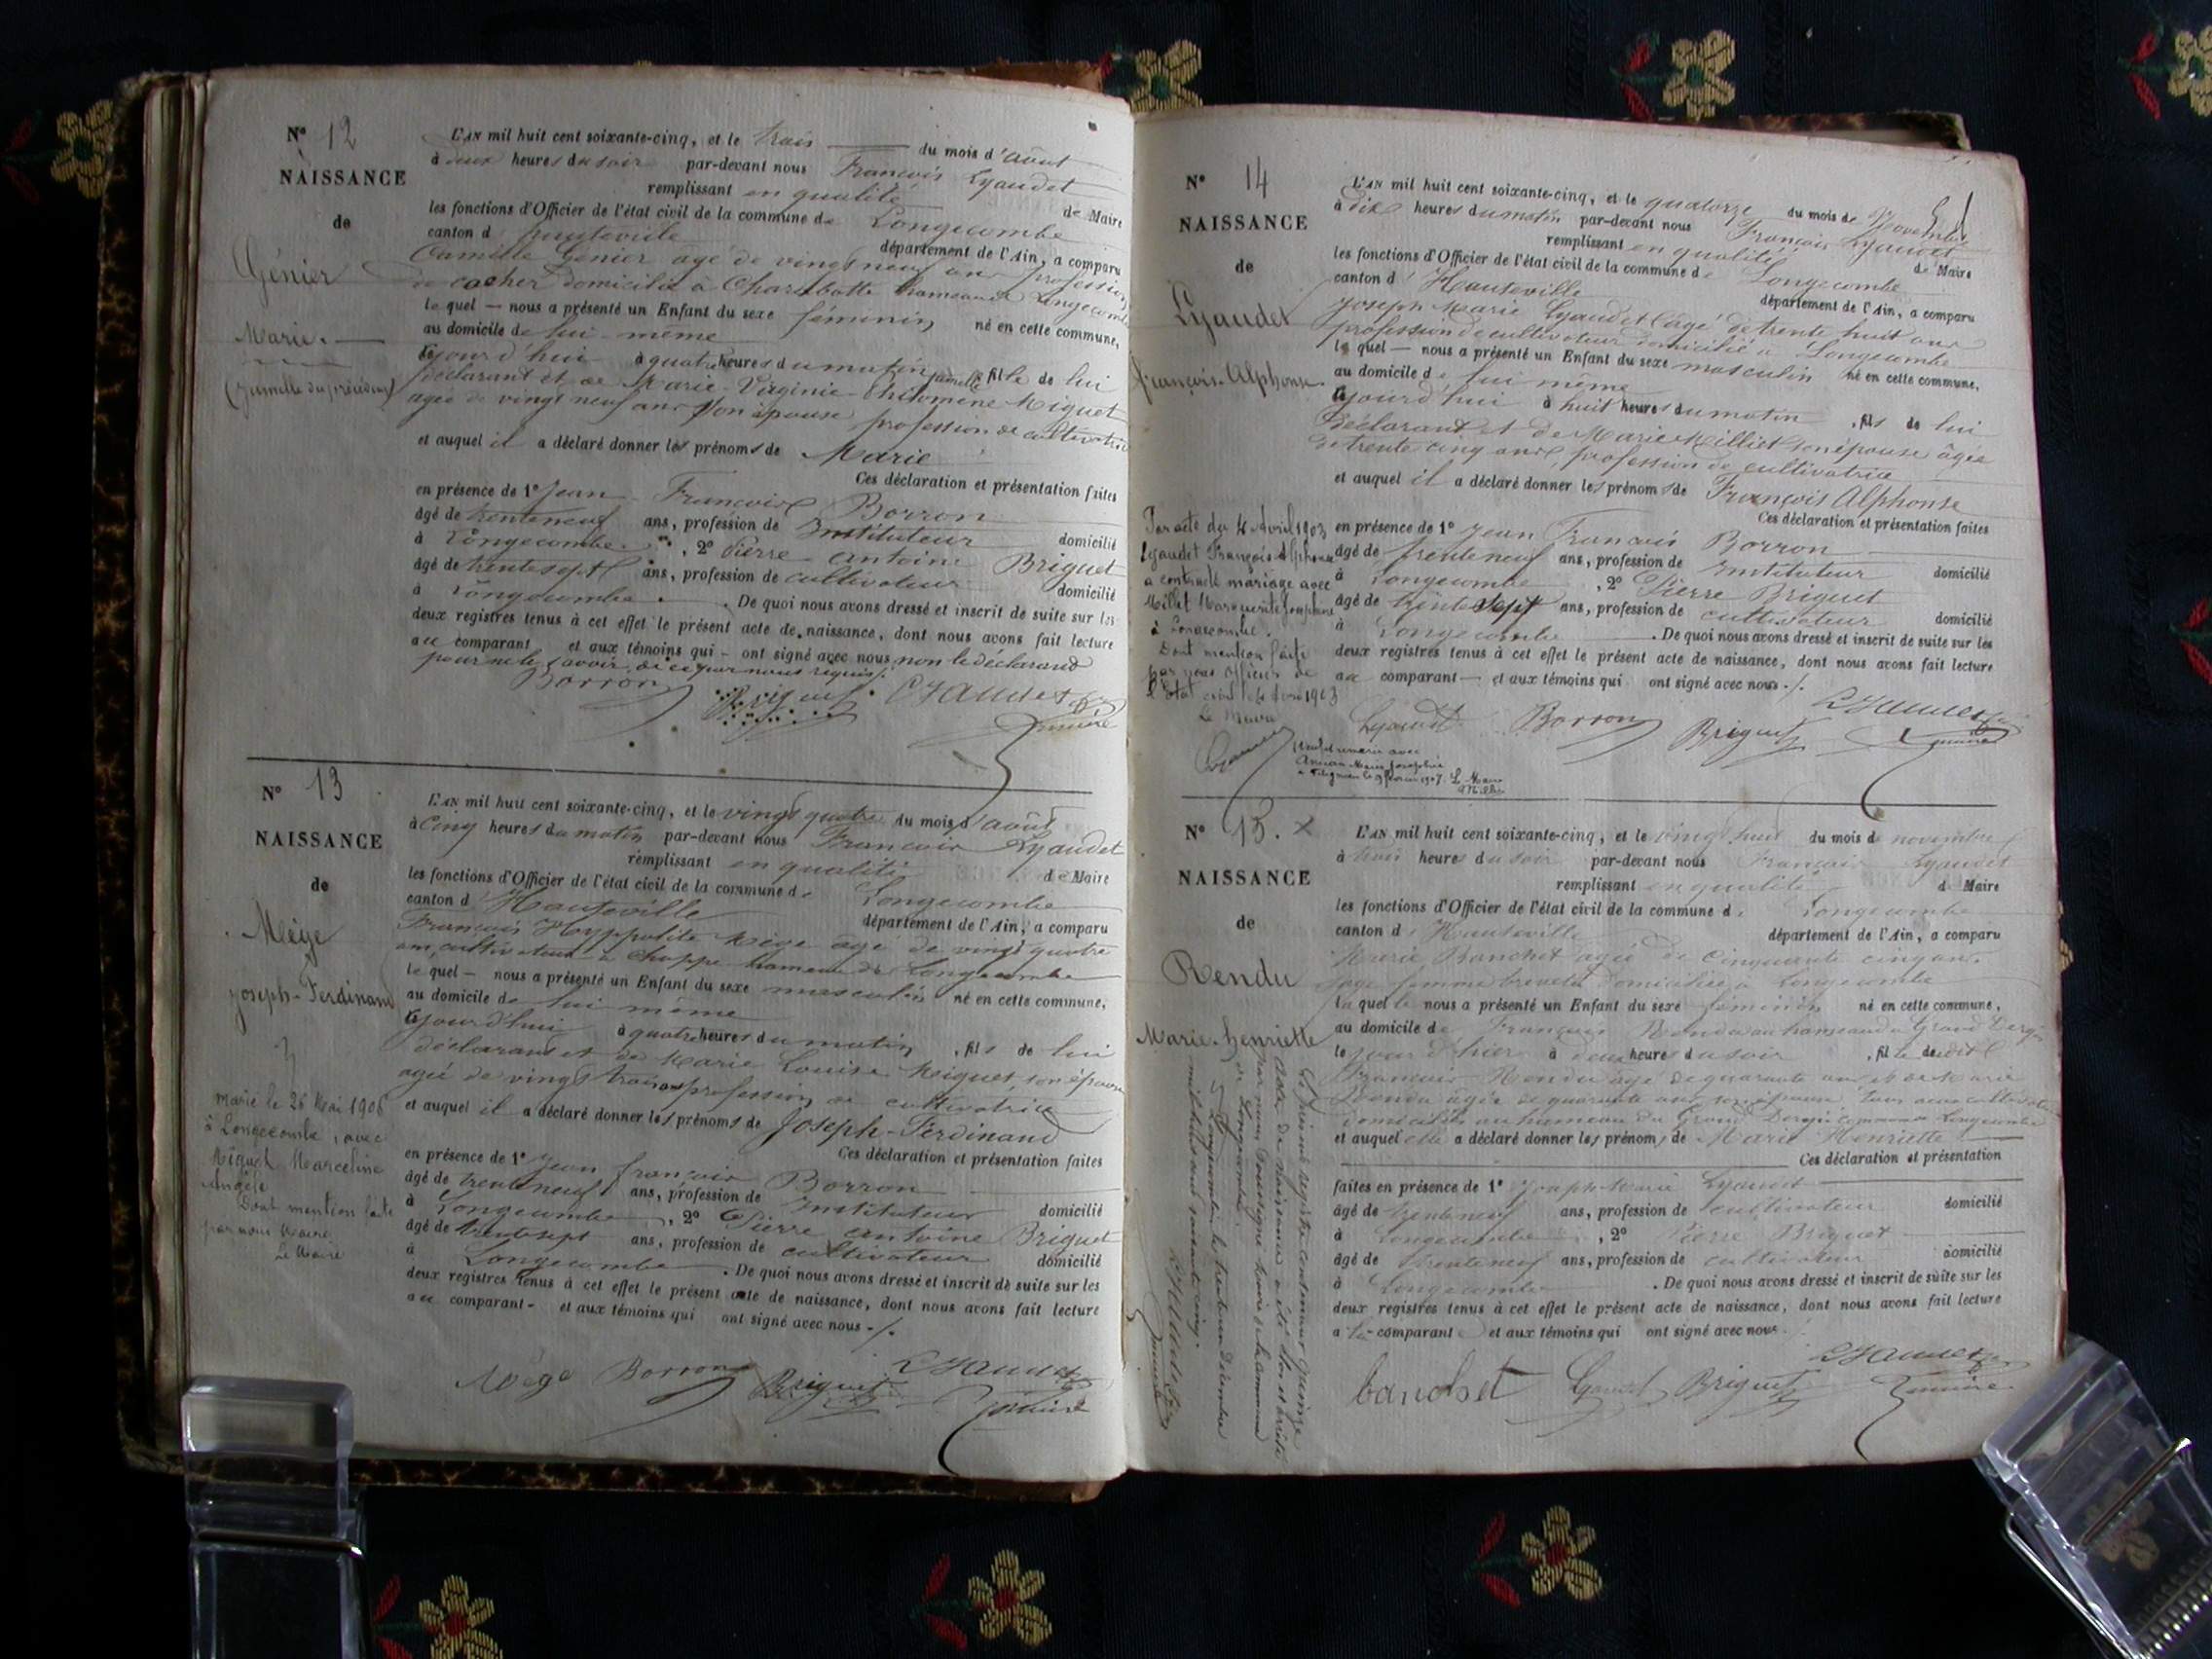 N° 12
NAISSANCE
de
Génier
Marie.
(Jumelle du précédent)
L'AN mil huit cent soixante-cinq, et le trois du mois d'août
à deux heures du soir par-devant nous François Lyaudet
remplissant en qualité de Maire
les fonctions d'Officier de l'état civil de la commune de Longecombe
canton d' hauteville département de l'Ain, a comparu
Camille Génier âgé de vingt neuf ans profession
de cocher domicilié à Charabotte hameau de Longecombe
le quel nous a présenté un Enfant du sexe féminin né en cette commune,
au domicile de lui-même
cejourd'hui à quatre heures du matin jumelle fille de lui
déclarant et de Marie-Virginie-Philomène Miguet
agée de vingt neuf ans son épouse profession de cultivatrice
et auquel il a déclaré donner les prénoms de Marie
Ces déclaration et présentation faites
en présence de 1° Jean François Borron
âgé de trenteneuf ans, profession de Instituteur domicilié
à Longecombe, 2° Pierre Antoine Briguet
âgé de trentesept ans, profession de cultivateur domicilié
à Longecombe. De quoi nous avons dressé et inscrit de suite sur les
deux registres tenus à cet effet le présent acte de naissance, dont nous avons fait lecture
au comparant et aux témoins qui ont signé avec nous non le déclarand
pour ne le savoir de ce par nous requis./.
Borron Briguet Lyaudet
N° 13
NAISSANCE
de
Mège
Joseph-Ferdinand
marié le 26 Mai 1906
à Longecombe, avec
Miguet Marceline
Angèle
Dont mention faite
par nous Maire
Le Maire
L'AN mil huit cent soixante-cinq, et le vingt quatre du mois d'août
à cinq heures du matin par-devant nous François Lyaudet
remplissant en qualité de Maire
les fonctions d'Officier de l'état civil de la commune de Longecombe
canton d' Hauteville département de l'Ain, a comparu
François Hyppolite Mège âgé de vingt quatre
ans, cultivateur à Choppe hameau de Longecombe
le quel nous a présenté un Enfant du sexe masculin né en cette commune,
au domicile de lui même
cejourd'hui à quatre heures du matin, fils de lui
déclarant et de Marie Louise Miguet, son épouse
agée de vingt trois ans profession de cultivatrice
et auquel il a déclaré donner les prénoms de Joseph-Ferdinand
Ces déclaration et présentation faites
en présence de 1° Jean françois Borron
âgé de trenteneuf ans, profession de Instituteur domicilié
à Longecombe, 2° Pierre antoine Briguet
âgé de trentesept ans, profession de cultivateur domicilié
à Longecombe. De quoi nous avons dressé et inscrit de suite sur les
deux registres tenus à cet effet le présent acte de naissance, dont nous avons fait lecture
au comparant - et aux témoins qui ont signé avec nous -/.
Mège Borron Briguet Lyaudet
N° 14
NAISSANCE
de
Lyaudet
François-Alphonse
Par acte du 4 Avril 1903
Lyaudet François Alphonse
a contracté mariage avec
Millet Marguerite Josephine
à Longecombe.
Dont mention faite
par nous Officier de
l'Etat civil le 4 Avril 1903
Le Maire
L'AN mil huit cent soixante-cinq, et le quatorze du mois de Novembre
à dix heures du matin par-devant nous François Lyaudet
remplissant en qualité de Maire
les fonctions d'Officier de l'état civil de la commune de Longecombe
canton d' Hauteville département de l'Ain, a comparu
Joseph Marie Lyaudet âgé de trente huit ans
profession de cultivateur domicilié à Longecombe
le quel nous a présenté un Enfant du sexe masculin né en cette commune,
au domicile de lui même
cejourd'hui à huit heures du matin, fils de lui
déclarant et de Marie Milliet son épouse âgée
de trente cinq ans profession de cultivatrice
et auquel il a déclaré donner les prénoms de François Alphonse
Ces déclaration et présentation faites
en présence de 1° Jean François Borron
âgé de trenteneuf ans, profession de Instituteur domicilié
à Longecombe, 2° Pierre Briguet
âgé de trente sept ans, profession de cultivateur domicilié
à Longecombe. De quoi nous avons dressé et inscrit de suite sur les
deux registres tenus à cet effet le présent acte de naissance, dont nous avons fait lecture
au comparant - et aux témoins qui ont signé avec nous -/.
Lyaudet Borron Briguet Lyaudet
avec
Marie Josephine
le 9 février 1907. Le Maire
N° 15. x
NAISSANCE
de
Rendu
Marie-henriette
L'AN mil huit cent soixante-cinq, et le vingt huit du mois de novembre
à trois heures du soir par-devant nous François Lyaudet
remplissant en qualité de Maire
les fonctions d'Officier de l'état civil de la commune de Longecombe
canton d' Hauteville département de l'Ain, a comparu
Marie Banchet agée de cinquante cinq ans,
sage femme brevetée domiciliée à Longecombe
laquelle nous a présenté un Enfant du sexe féminin né en cette commune,
au domicile de François Rendu au hameau du Grand Dergis
le jour d'hier à deux heures du soir, fille dudit
François Rendu âgé de quarante ans et de Marie
Rendu âgée de quarante ans son épouse, tous deux cultivateurs
domiciliés au hameau du Grand Dergis commune Longecombe
et auquel elle a déclaré donner les prénoms de Marie Henriette
Ces déclaration et présentation
faites en présence de 1° Joseph Marie Lyaudet
âgé de trenteneuf ans, profession de cultivateur domicilié
à Longecombe, 2° Pierre Briguet
âgé de trenteneuf ans, profession de cultivateur domicilié
à Longecombe. De quoi nous avons dressé et inscrit de suite sur les
deux registres tenus à cet effet le présent acte de naissance, dont nous avons fait lecture
a la comparante et aux témoins qui ont signé avec nous.
banchet Lyaudet Briguet Lyaudet
Le présent registre contenant quinze
actes de naissance a été clos et arrêté
par nous soussigné maire de la commune
de Longecombe.
à Longecombe le trente un décembre
mil huit cent soixante cinq